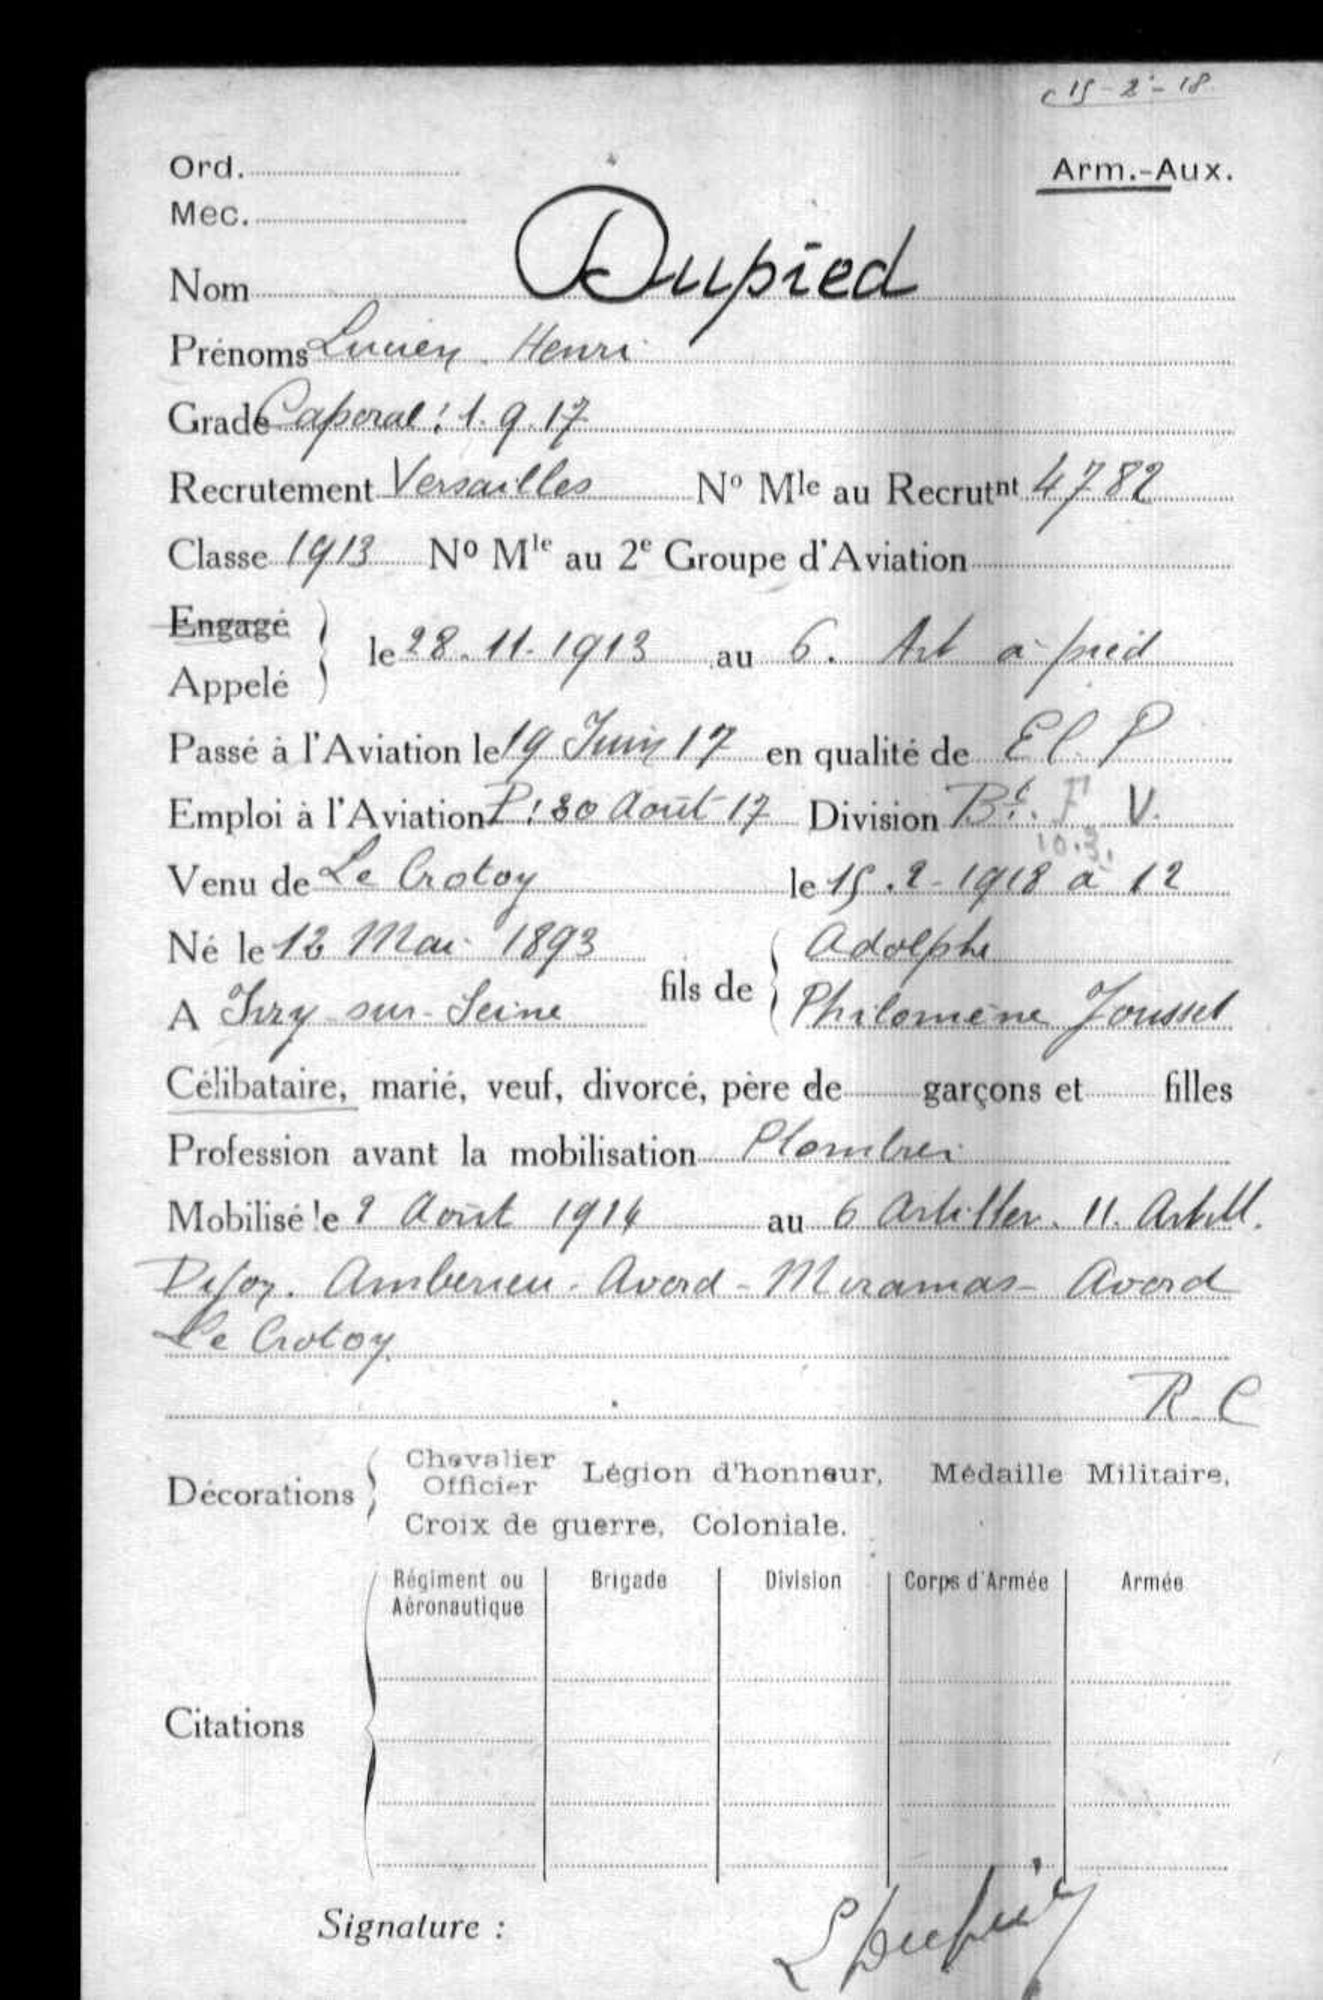 15-2-18
Ord.
Arm.-Aux.
Mec.
Nom Dupied
Prénoms Lucien Henri
Grade Caporal: 1.9.17
Recrutement Versailles No Mle au Recrutnt 4782
Classe 1913 No Mle au 2e Groupe d'Aviation
Engagé
le 28.11.1913 au 6. Art à pied
Appelé
Passé à l'Aviation le 19 Juin 17 en qualité de El. P
Emploi à l'Aviation P: 30 Août 17 Division Bt. F V.
10.3.
Venu de Le Crotoy le 15.2-1918 à 12
Né le 12 Mai 1893 Adolphe
fils de
A Ivry-sur-Seine Philomène Jousset
Célibataire, marié, veuf, divorcé, père de garçons et filles
Profession avant la mobilisation Plombier
Mobilisé le 2 Août 1914 au 6 Artiller. 11. Artill.
Dijon. Amberieu - Avord - Miramas - Avord
Le Crotoy.
R. C
Décorations Chevalier Officier Légion d'honneur, Médaille Militaire,
Croix de guerre, Coloniale.
Régiment ou Aéronautique Brigade Division Corps d'Armée Armée
Citations
Signature :
L Dupied